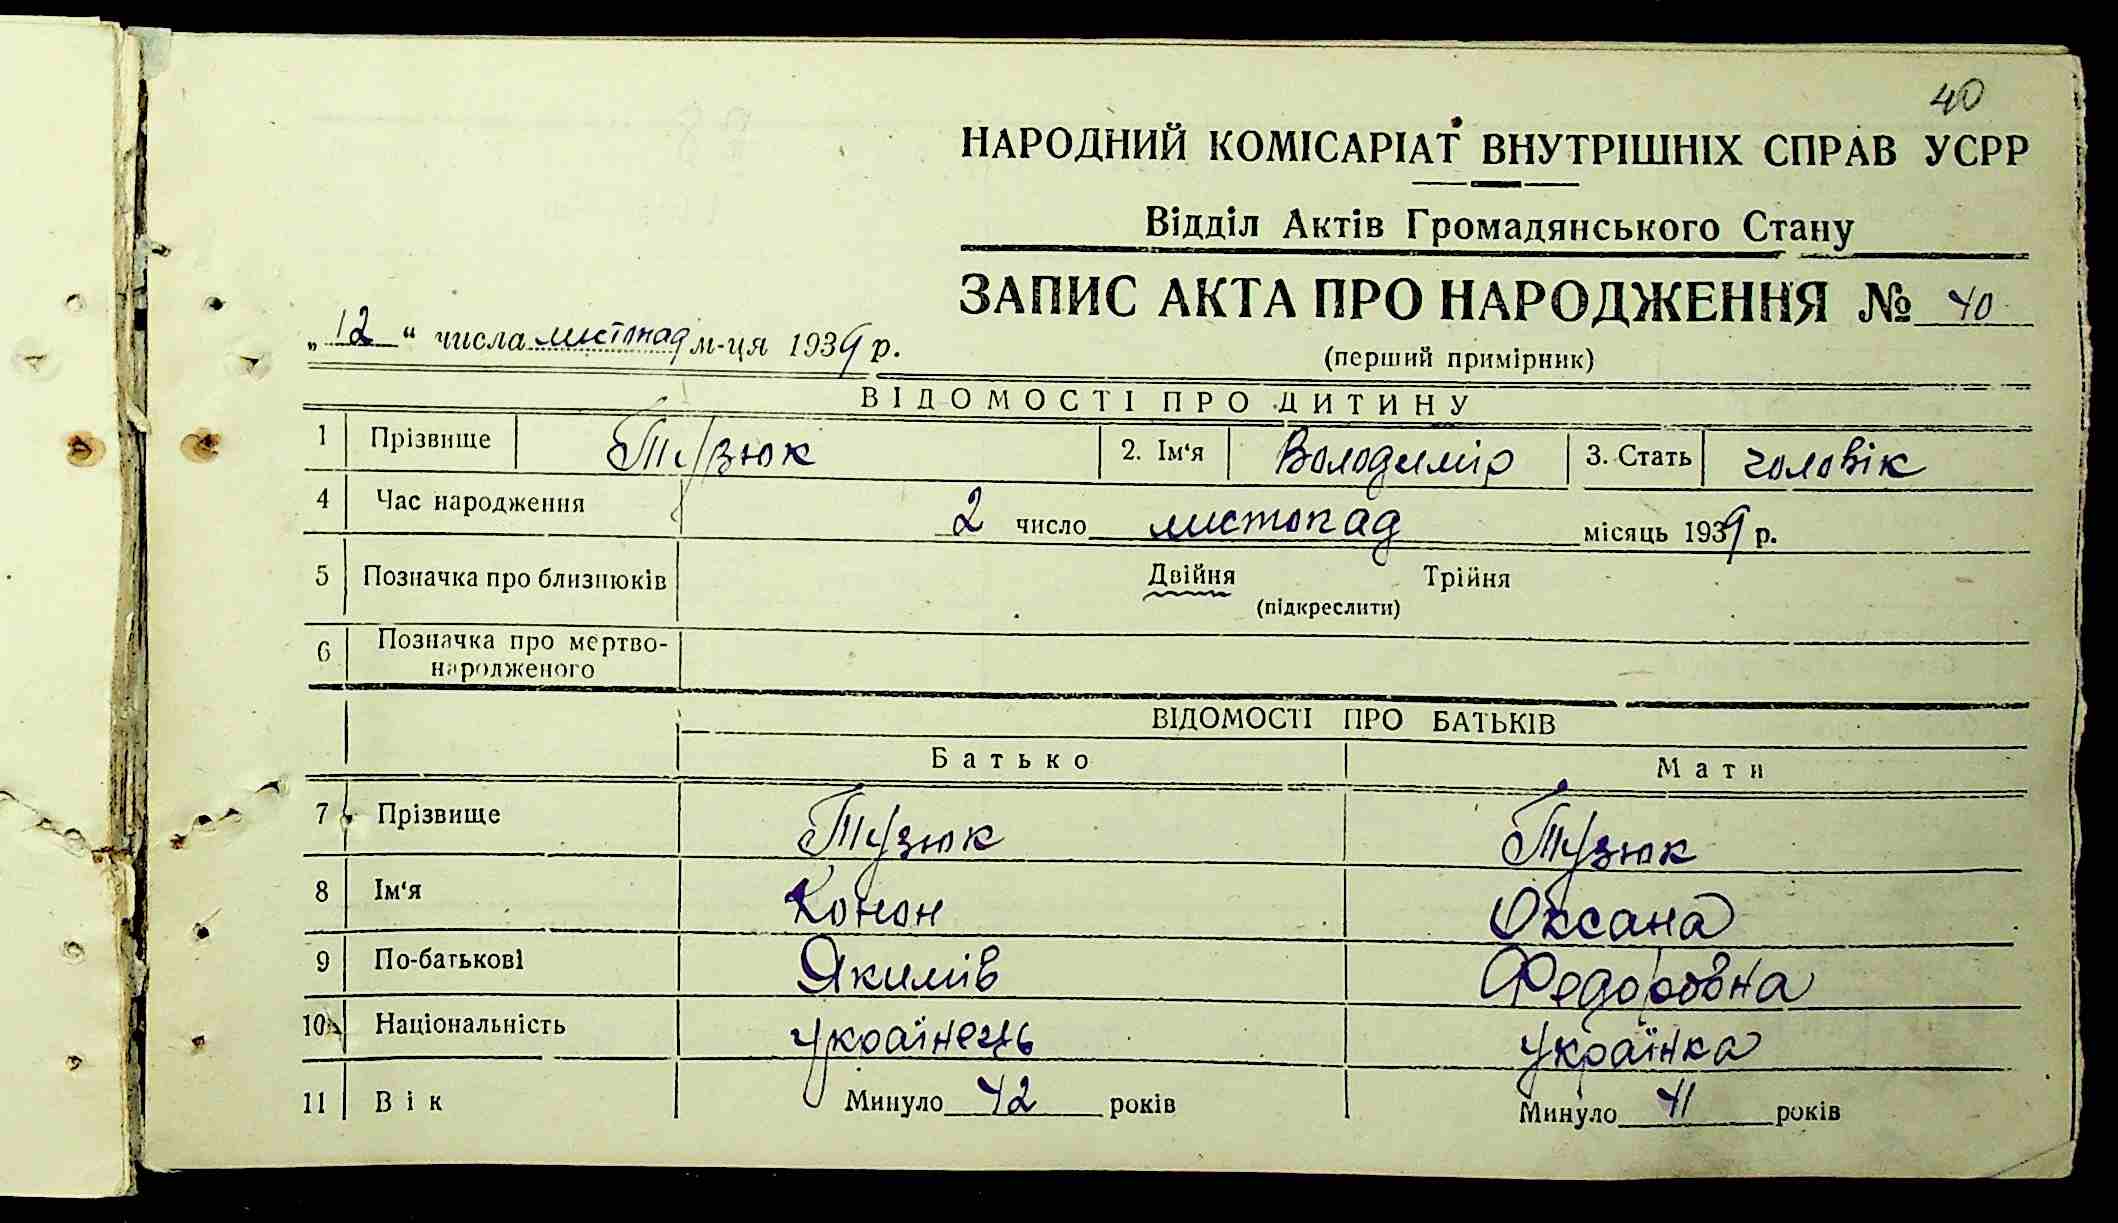 40
НАРОДНИЙ КОМІСАРІАТ ВНУТРІШНІХ СПРАВ УСРР
Відділ Актів Громадянського Стану
ЗАПИС АКТА ПРО НАРОДЖЕННЯ № 40
„ 12 “ числа листопад м-ця 1939 р.
(перший примірник)
ВІДОМОСТІ ПРО ДИТИНУ
1 Прізвище Тузюк 2. Ім‘я Володимір 3. Стать чоловік
4 Час народження 2 число листопад місяць 1939 р.
5 Позначка про близнюків Двійня Трійня
(підкреслити)
6 Позначка про мертво-
народженого
ВІДОМОСТІ ПРО БАТЬКІВ
Батько Мати
7 Прізвище Тузюк Тузюк
8 Ім‘я Конон Оксана
9 По-батькові Якимів Федоровна
10 Національність українець українка
11 Вік Минуло 42 років Минуло 41 років